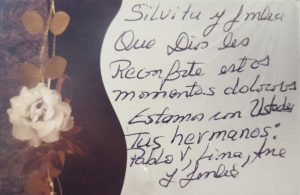 Silvita y Emilia
Que Dios les
Reconforte estos
momentos dolorosos
Estamos con Ustedes
Tus hermanos:
Pablo V, Gina, Ana
y Emilio